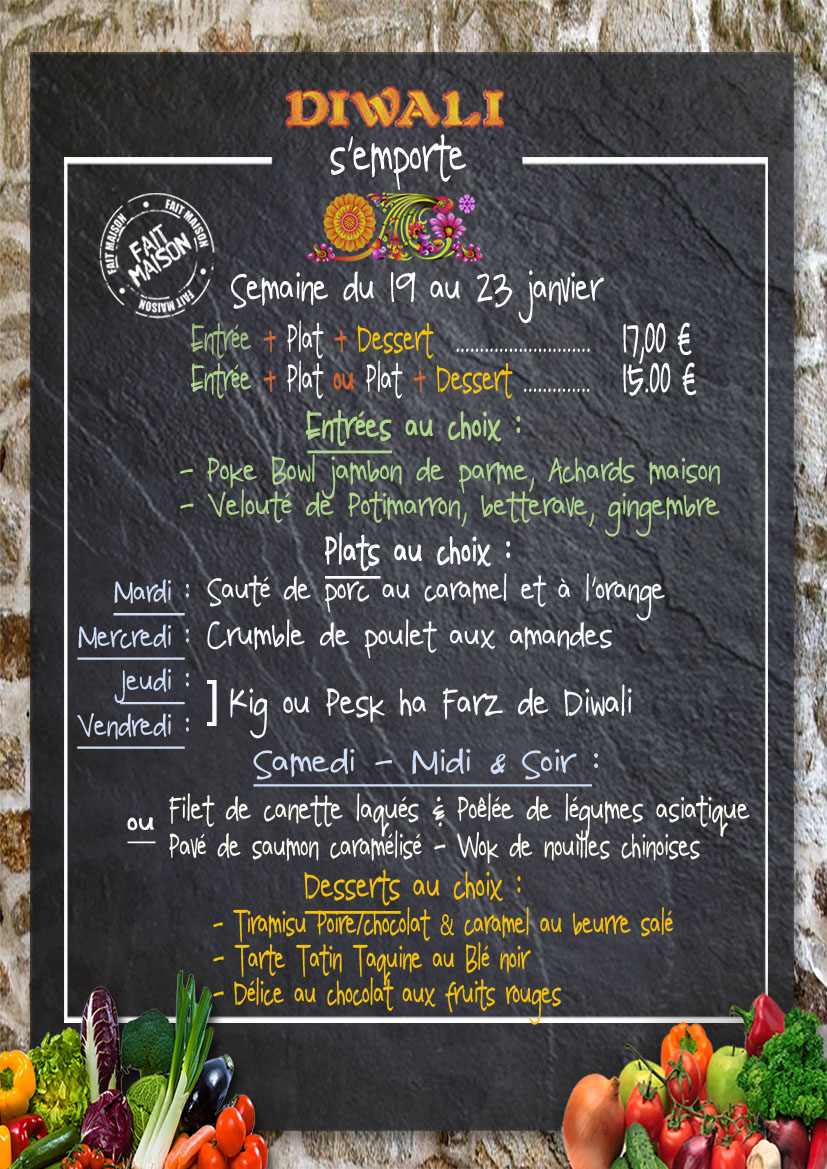 DIWALI
s'emporte
FAIT MAISON
FAIT MAISON
FAIT MAISON
FAIT MAISON
Semaine du 19 au 23 janvier
Entrée + Plat + Dessert ............................ 17,00 €
Entrée + Plat ou Plat + Dessert .............. 15.00 €
Entrées au choix :
- Poke Bowl jambon de parme, Achards maison
- Velouté de Potimarron, betterave, gingembre
Plats au choix :
Mardi : Sauté de porc au caramel et à l'orange
Mercredi : Crumble de poulet aux amandes
Jeudi :
] Kig ou Pesk ha Farz de Diwali
Vendredi :
Samedi - Midi & Soir :
Filet de canette laqués & Poêlée de légumes asiatique
ou
Pavé de saumon caramélisé - Wok de nouilles chinoises
Desserts au choix :
- Tiramisu Poire/chocolat & caramel au beurre salé
- Tarte Tatin Taquine au Blé noir
- Délice au chocolat aux fruits rouges